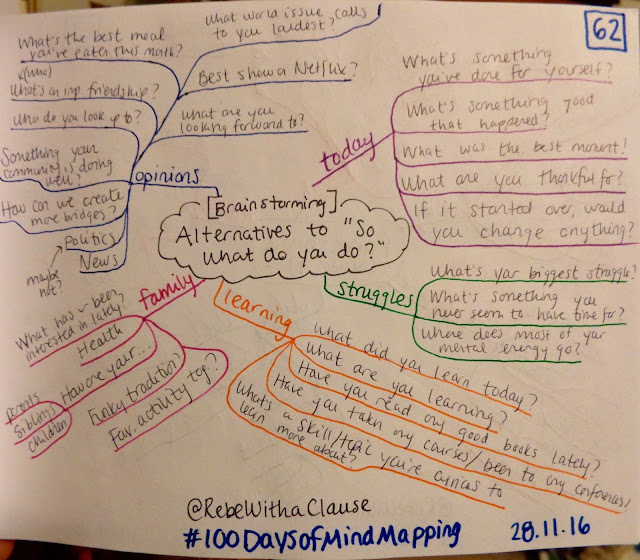 62
[Brainstorming]
Alternatives to "So
what do you do?"
opinions
What's the best meal
you've eaten this month?
What world issue calls
to you loudest?
Best show on Netflix?
What are you
looking forward to?
(who)
What's an imp friendship?
Who do you look up to?
Something your
community is doing
well?
How can we create
more bridges?
Politics
News
maybe
not?
today
What's something
you've done for yourself?
What's something good
that happened?
What was the best moment?
What are you thankful for?
If it started over, would
you change anything?
struggles
What's your biggest struggle?
What's something you
never seem to have time for?
Where does most of your
mental energy go?
learning
What did you learn today?
What are you learning?
Have you read any good books lately?
Have you taken any courses/been to any conferences?
What's a skill/topic you're curious to
learn more about?
family
What has ~ been
interested in lately?
Health
How are your...
parents
siblings
children
Funky tradition?
Fav. activity tog.?
@RebeWithaClause
#100DaysofMindMapping
28.11.16